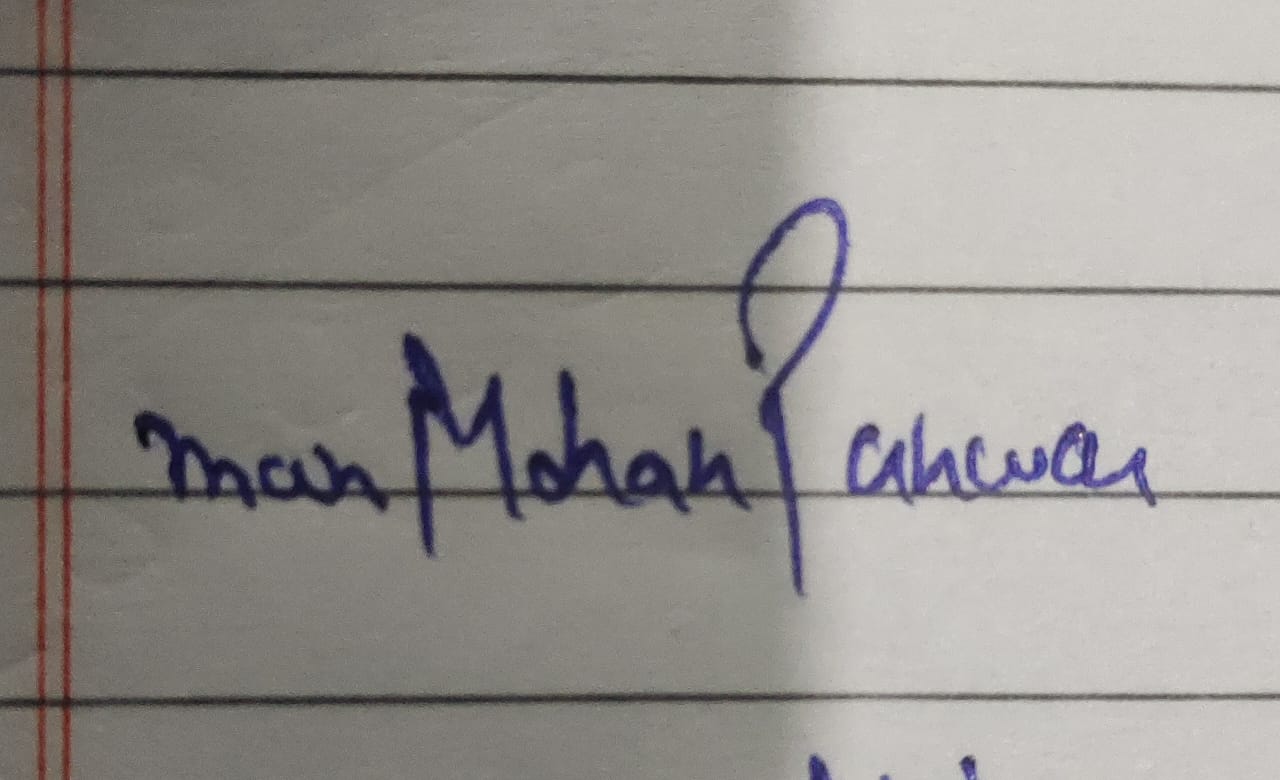 Man Mohan Panwar